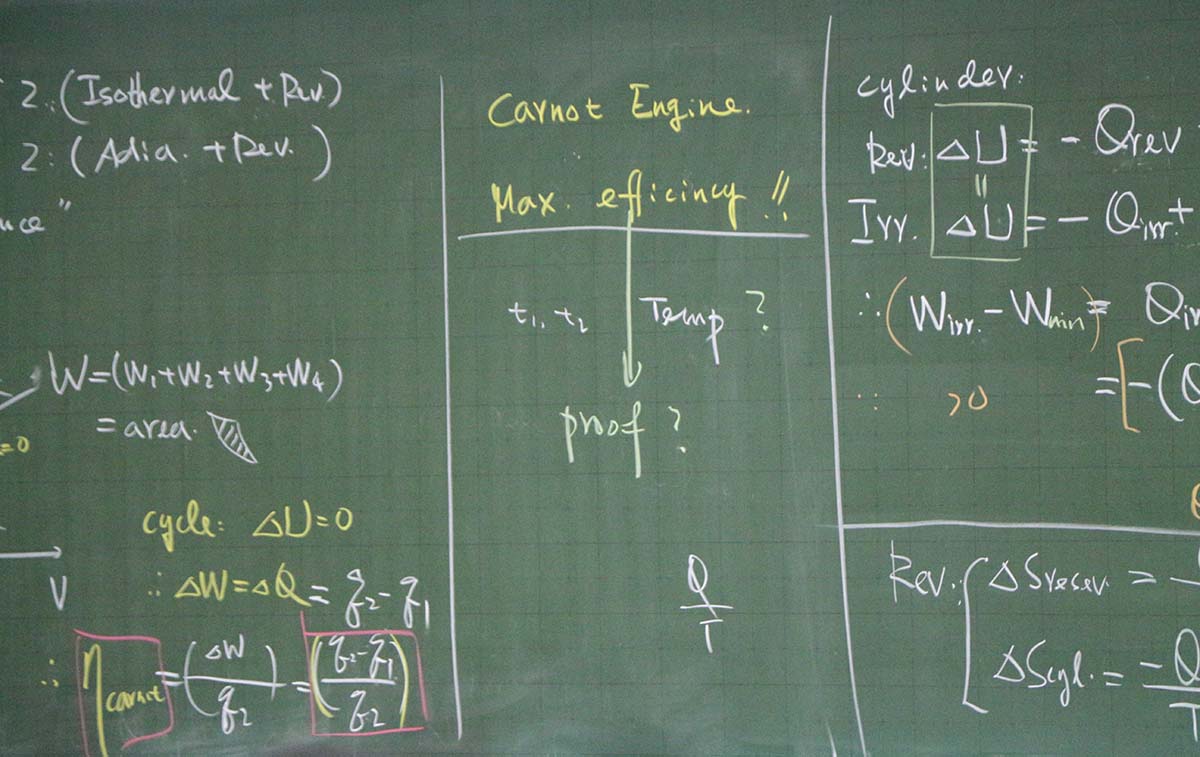 2: (Isothermal + Rev.)
2: (Adia. + Rev.)
"
W=(W₁+W₂+W₃+W₄)
= area.
=0
cycle: ΔU=0
V
∴ ΔW=ΔQ = q₂-q₁
∴ η carnot = (ΔW / q₂) = (q₂-q₁ / q₂)
Carnot Engine.
Max. efficincy !!
t₁, t₂ Temp ?
proof ?
Q/T
cylinder:
Rev: ΔU = - Qrev
=
Irr. ΔU = - Qirr. +
∴ (Wirr. - Wmin) =
∴ >0 = [-(Q
Rev. { ΔSreser. = -
ΔScyl. = -Q/T